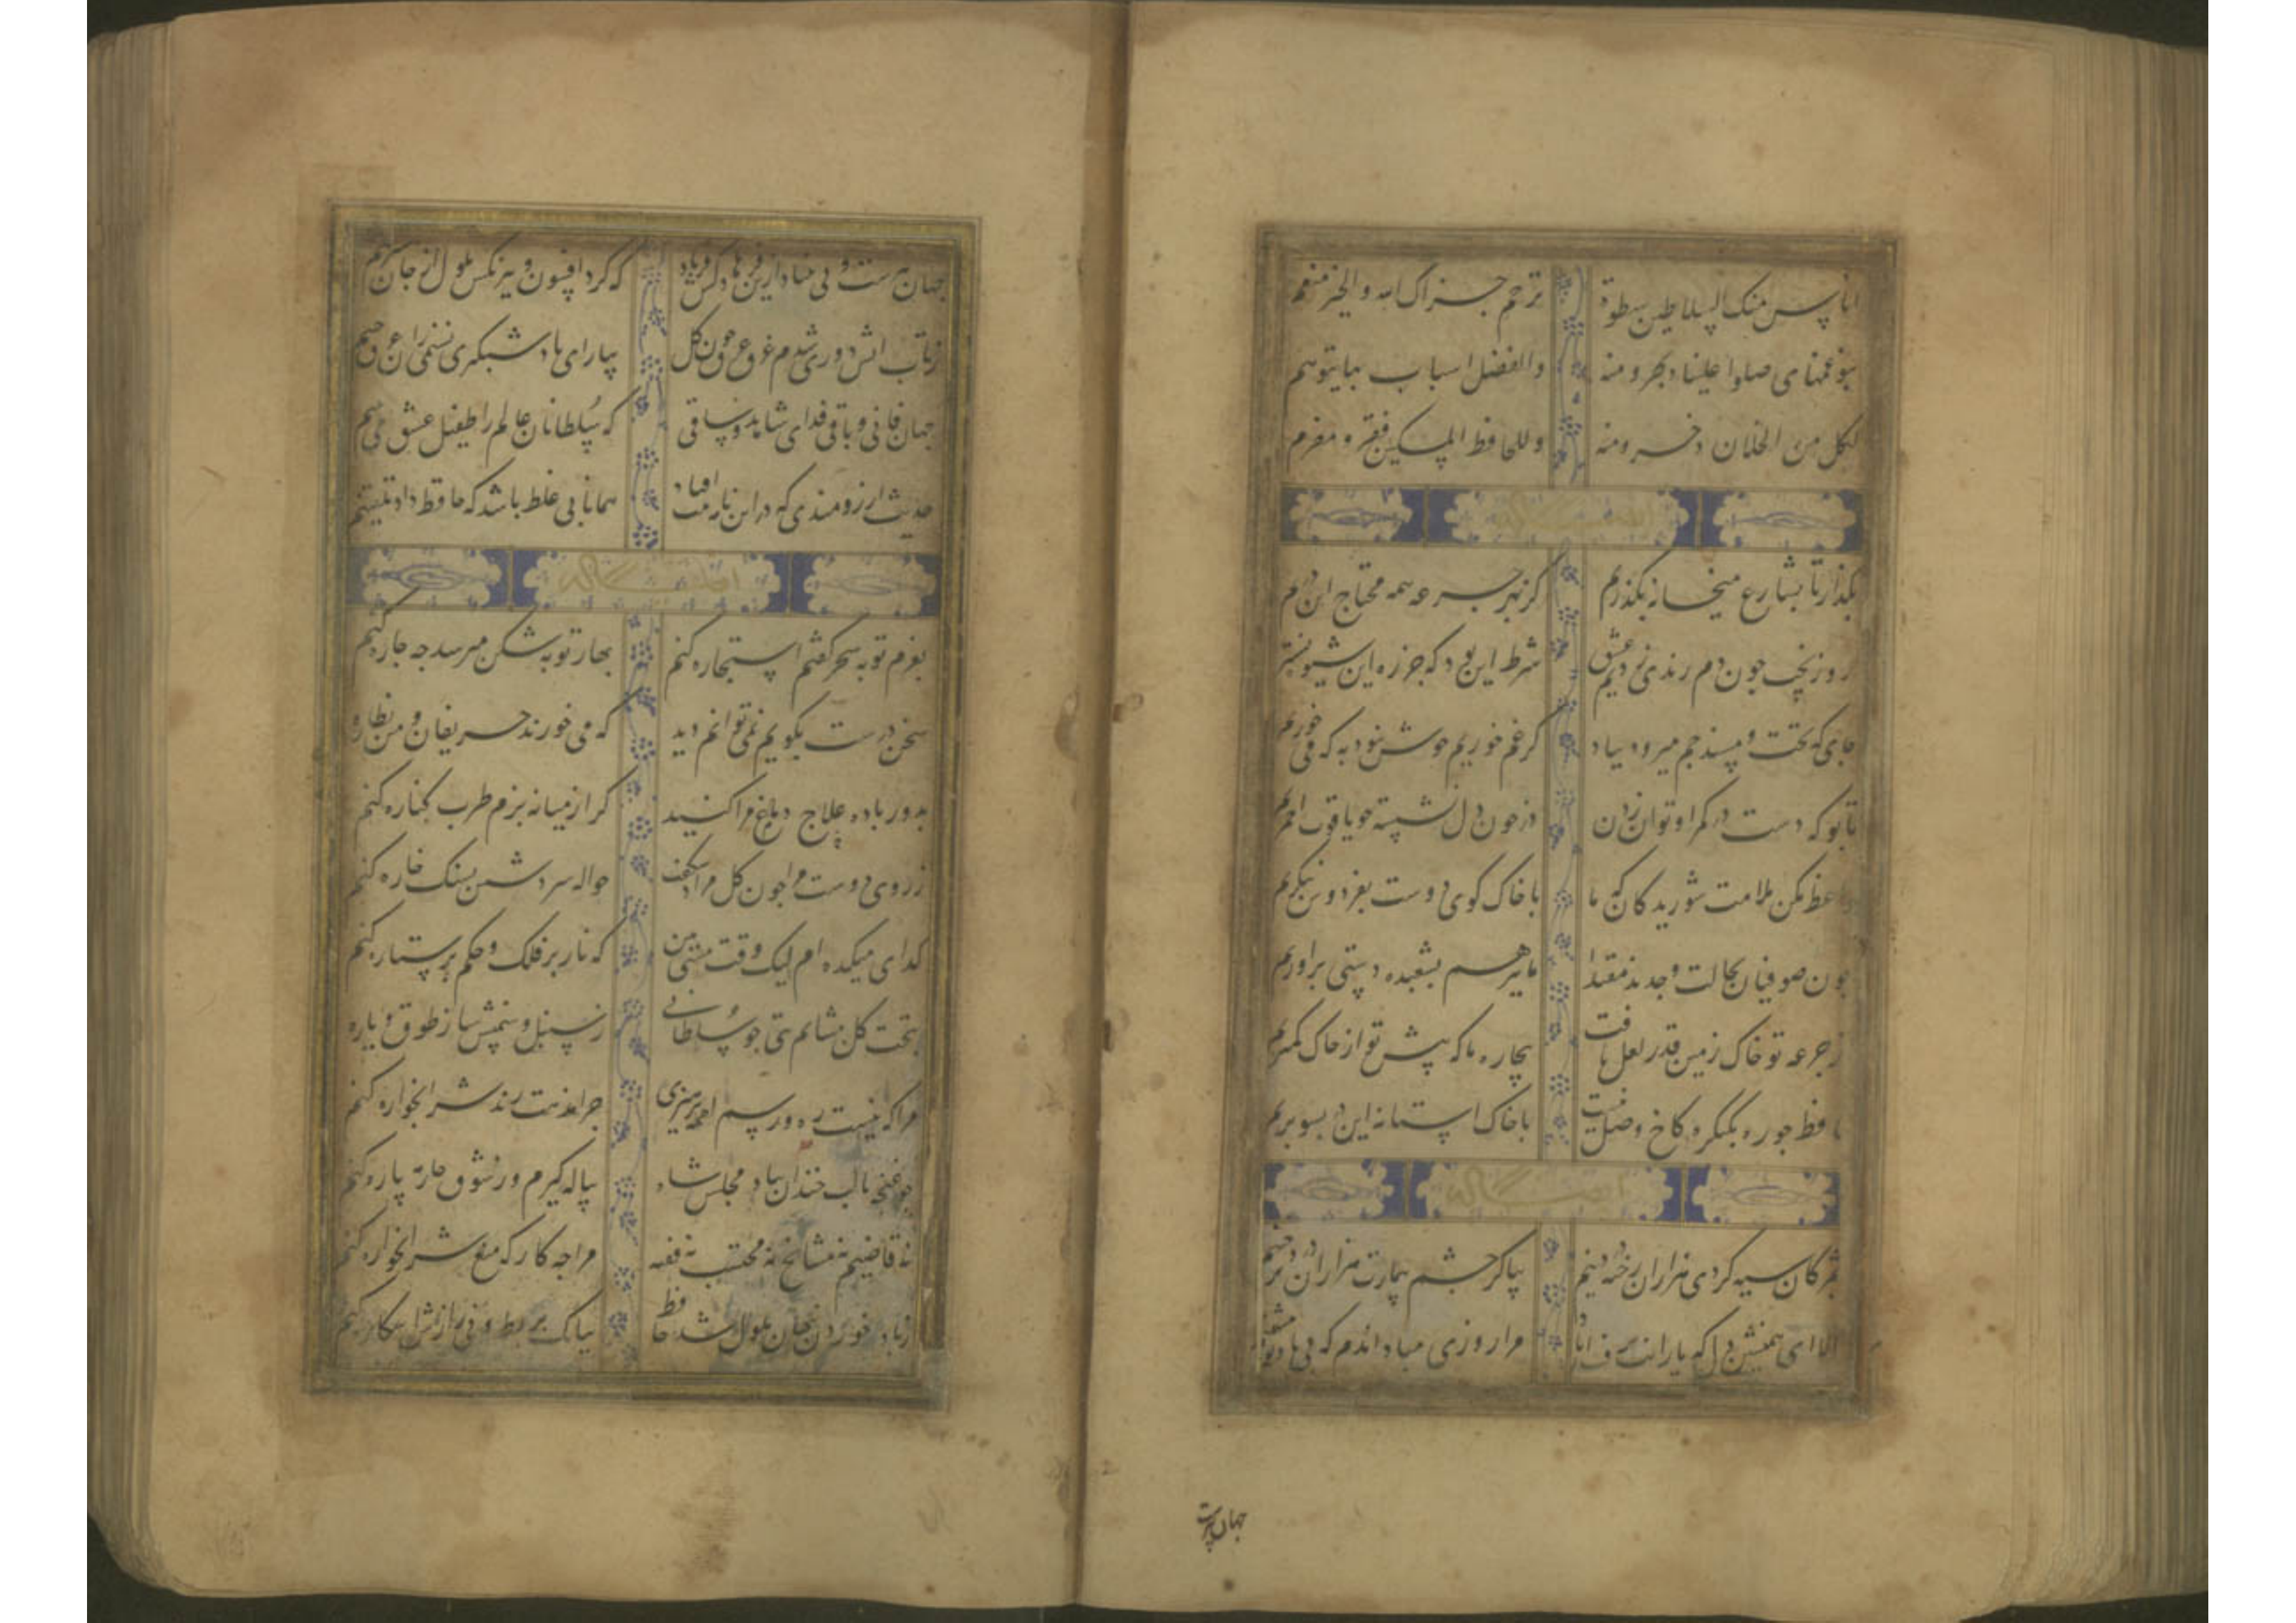 اتایس منک السلاطین سطوة ترحم جزاک الله والخیر مغنم
بنو عمنا می صلوا علینا بجرعة و للفضل اسباب بها یتوسم
لکل من الخلان ذخر ومنة و للحافظ المسکین فقر و مغرم
بکذار تا بشارع میخانه بکذریم کز بهر جرعه همه محتاج این دریم
روز نخست چون دم رندی زدیم و عشق شرط این بود که جز ره این شیوه نسپریم
جای که تخت و مسند جم میرود بباد کر غم خوریم خوش نبود به که می خوریم
تا بو که دست در کمر او توان زدن در خون دل نشسته چو یاقوت احمریم
واعظ مکن ملامت شوریدکان که ما با خاک کوی دوست بفردوس ننکریم
چون صوفیان بحالت وجدند مقتدا ما نیز هم بشعبده دستی براوریم
از جرعه تو خاک زمین قدر لعل یافت بیچاره ما که پیش تو از خاک کمتریم
حافظ چو ره بکنکره کاخ وصل نیست با خاک استانه این در بسر بریم
بمژکان سیه کردی هزاران رخنه در دینم بیا کز چشم بیمارت هزاران درد برچینم
الا ای همنشین دل که یارانت برفت از یاد مرا روزی مباد اندم که بی یاد تو بنشینم
جهان پیرست
جهان پیرست و بی بنیاد ازین فرهاد کش فریاد که کرد افسون و نیرنکش ملول از جان شیرینم
زتاب اتش دوری شدم غرق عرق چون کل بیار ای باد شبکیری نسیمی زان عرق چینم
جهان فانی و باقی فدای شاهد و ساقی که سلطانان عالم را طفیل عشق می بینم
حدیث ارزومندی که در این نامه ثبت افتاد همانا بی غلط باشد که حافظ داد تلقینم
بعزم توبه سحر کفتم استخاره کنم بهار توبه شکن میرسد چه چاره کنم
سخن درست بکویم نمی توانم دید که می خورند حریفان و من نظاره
بدور باده علاج دماغ مرا کنید کر از میانه بزم طرب کناره کنم
زروی دوست مرا چون کل مراد شکفت حواله سر دشمن بسنک خاره کنم
کدای میکده ام لیک وقت مستی بین که ناز بر فلک و حکم بر ستاره کنم
بتخت کل بنشانم بتی چو سلطانی زسنبل و سمنش ساز طوق و یاره
مرا که نیست ره و رسم لقمه پرهیزی چرا مذمت رند شرابخواره کنم
چو غنچه با لب خندان بیاد مجلس شاه پیاله کیرم و از شوق جامه پاره کنم
نه قاضیم نه مشایخ نه محتسب نه فقیه مرا چه کار که منع شرابخواره کنم
زباده خوردن پنهان ملول شد حافظ ببانک بربط و نی رازش اشکاره کنم